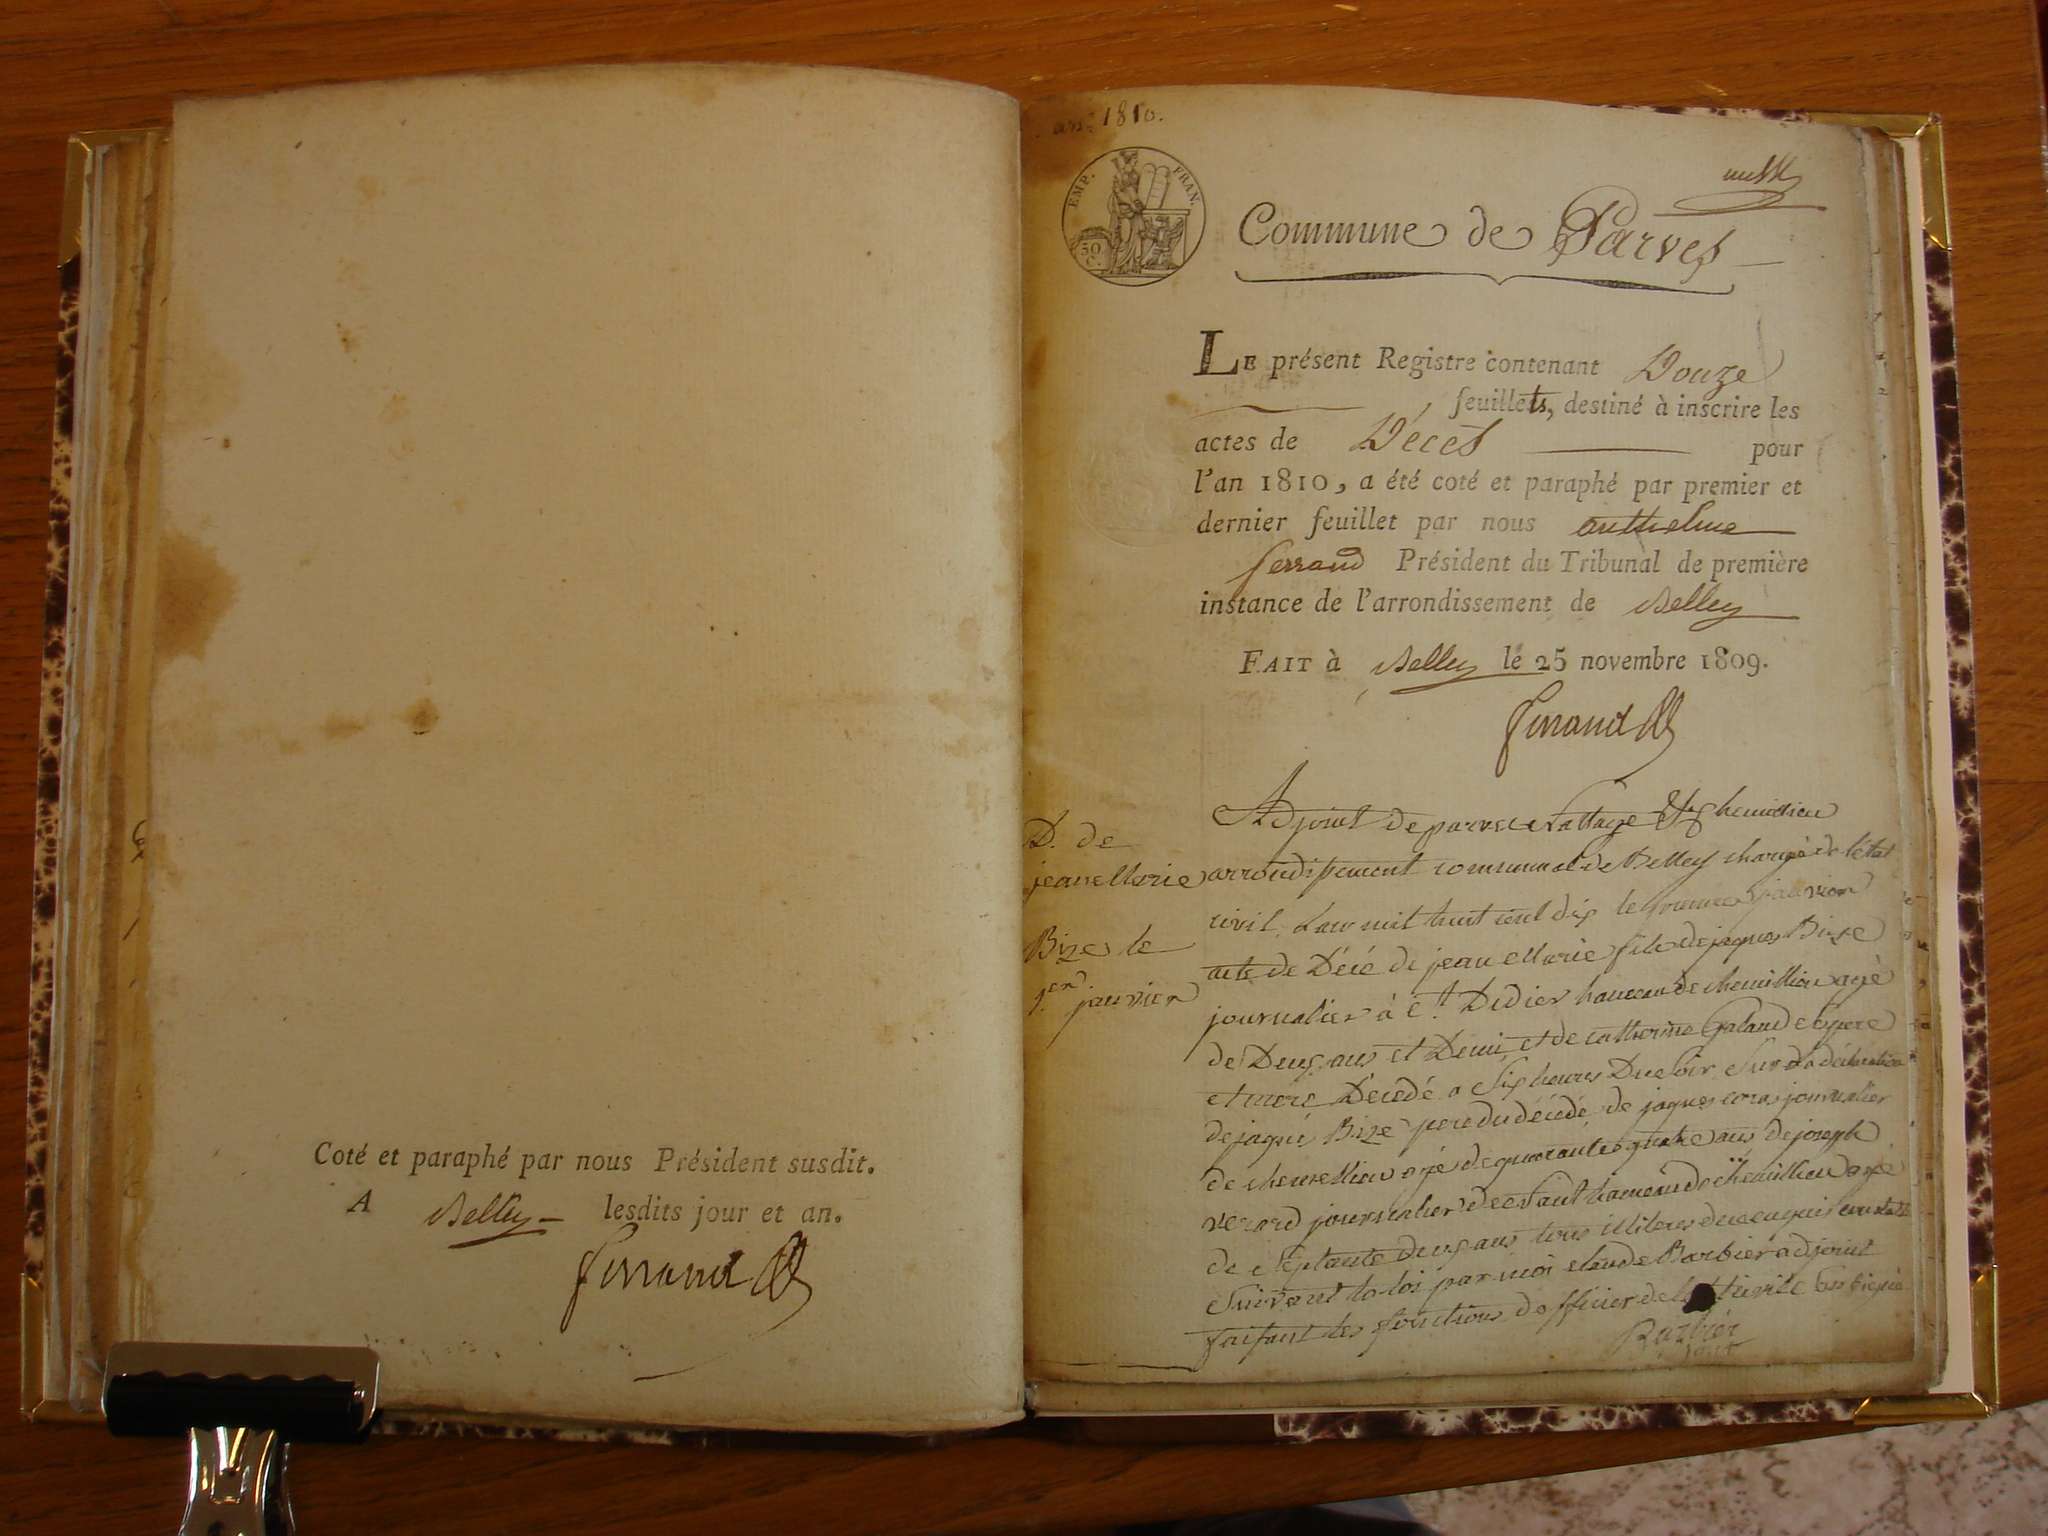 Coté et paraphé par nous Président susdit.
A Belley lesdits jour et an.
ferrand
an 1810.
EMP. FRAN.
50 C.
Commune de Parves
LE présent Registre contenant Douze
feuillets, destiné à inscrire les
actes de Décès pour
l'an 1810, a été coté et paraphé par premier et
dernier feuillet par nous anthelme
ferrand Président du Tribunal de première
instance de l'arrondissement de Belley
FAIT à Belley le 25 novembre 1809.
ferrand
D. de
jean Marie
Bize le
1.er janvier
Adjoint de parves Nattage et chemillieu
arrondissement communal de Belley chargé de l'état
civil. L'an mil huit cent dix le janvier
acte de Décé de jean Marie fils de jaques Bize
journalier à S.t Didier hameau de chemillieu agé
de Deux ans et Demi et de catherine Galand père
et mère Décédé a Six heures Du soir Sur la déclaration
de jaque Bize père du décédé, de jaques coras journalier
de chemillieu agé de quarante quatre ans de joseph
verard journalier hameau de chemillieu agé
de Septante deux ans tous illiteres de ce enquis constaté
Suivant la loi par moi claude Barbier adjoint
faisant les fonctions d'officier de civile
Barbier